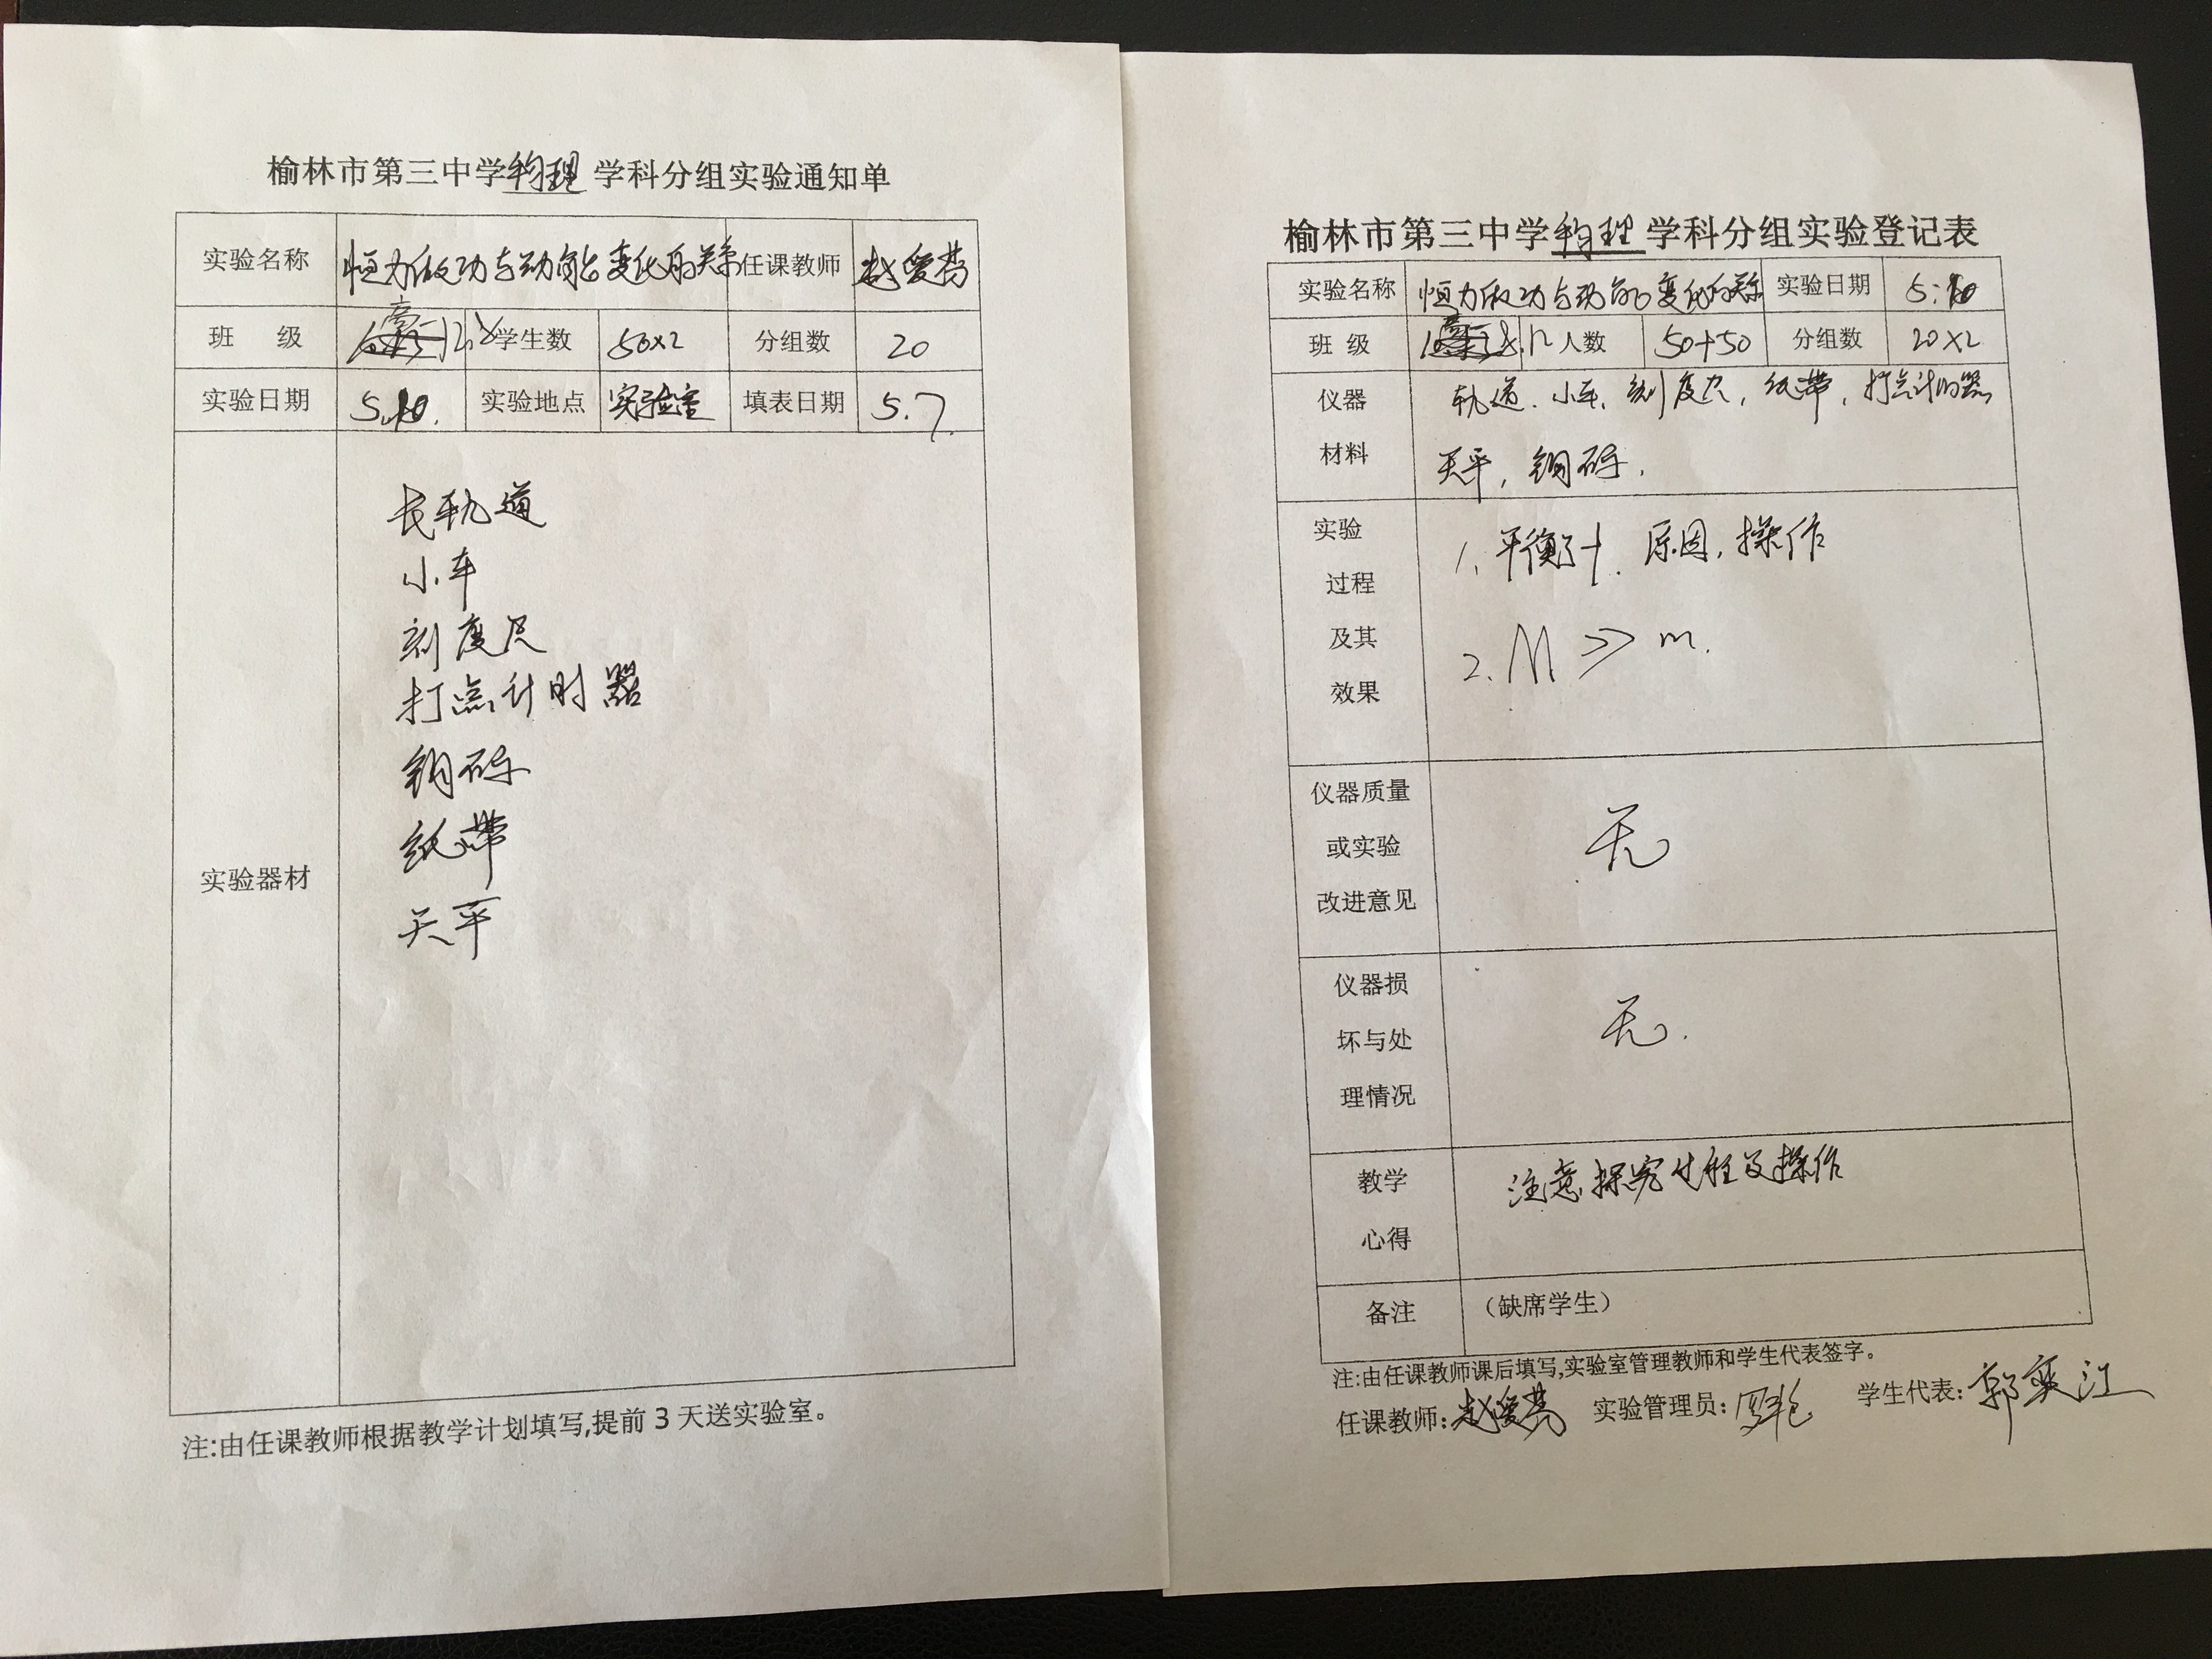 榆林市第三中学物理学科分组实验通知单
实验名称 恒力做功与动能变化的关系 任课教师
班 级 学生数 50×2 分组数 20
实验日期 5.10. 实验地点 实验室 填表日期 5.7.
实验器材
长轨道
小车
刻度尺
打点计时器
钩码
纸带
天平
注:由任课教师根据教学计划填写,提前3天送实验室。
榆林市第三中学物理学科分组实验登记表
实验名称 恒力做功与动能变化的关系 实验日期 5.10
班 级 人数 50+50 分组数 20×2
仪器 轨道.小车.刻度尺,纸带,打点计时器
材料 天平,钩码.
实验
过程
及其
效果
1. 原因,操作
2. M≫m.
仪器质量
或实验
改进意见
无
仪器损
坏与处
理情况
无.
教学
心得
注意探究过程及操作
备注 (缺席学生)
注:由任课教师课后填写,实验室管理教师和学生代表签字。
任课教师: 实验管理员: 学生代表: